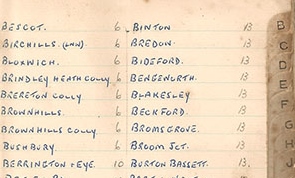 BESCOT. 6 BINTON 13
BIRCHILLS. (LNW). 6 BREDON. 13
BLOXWICH. 6 BIDEFORD. 13
BRINDLEY HEATH COLLY 6 BENGEWORTH. 13
BRERETON COLLY 6 BLAKESLEY 13
BROWNHILLS. 6 BECKFORD. 13
BROWNHILLS COLLY 6 BROMSGROVE. 13
BUSHBURY. 6 BROOM SCT. 13
BERRINGTON + EYE. 10 BURTON BASSETT. 13
B
C
D
E
F
G
H
J